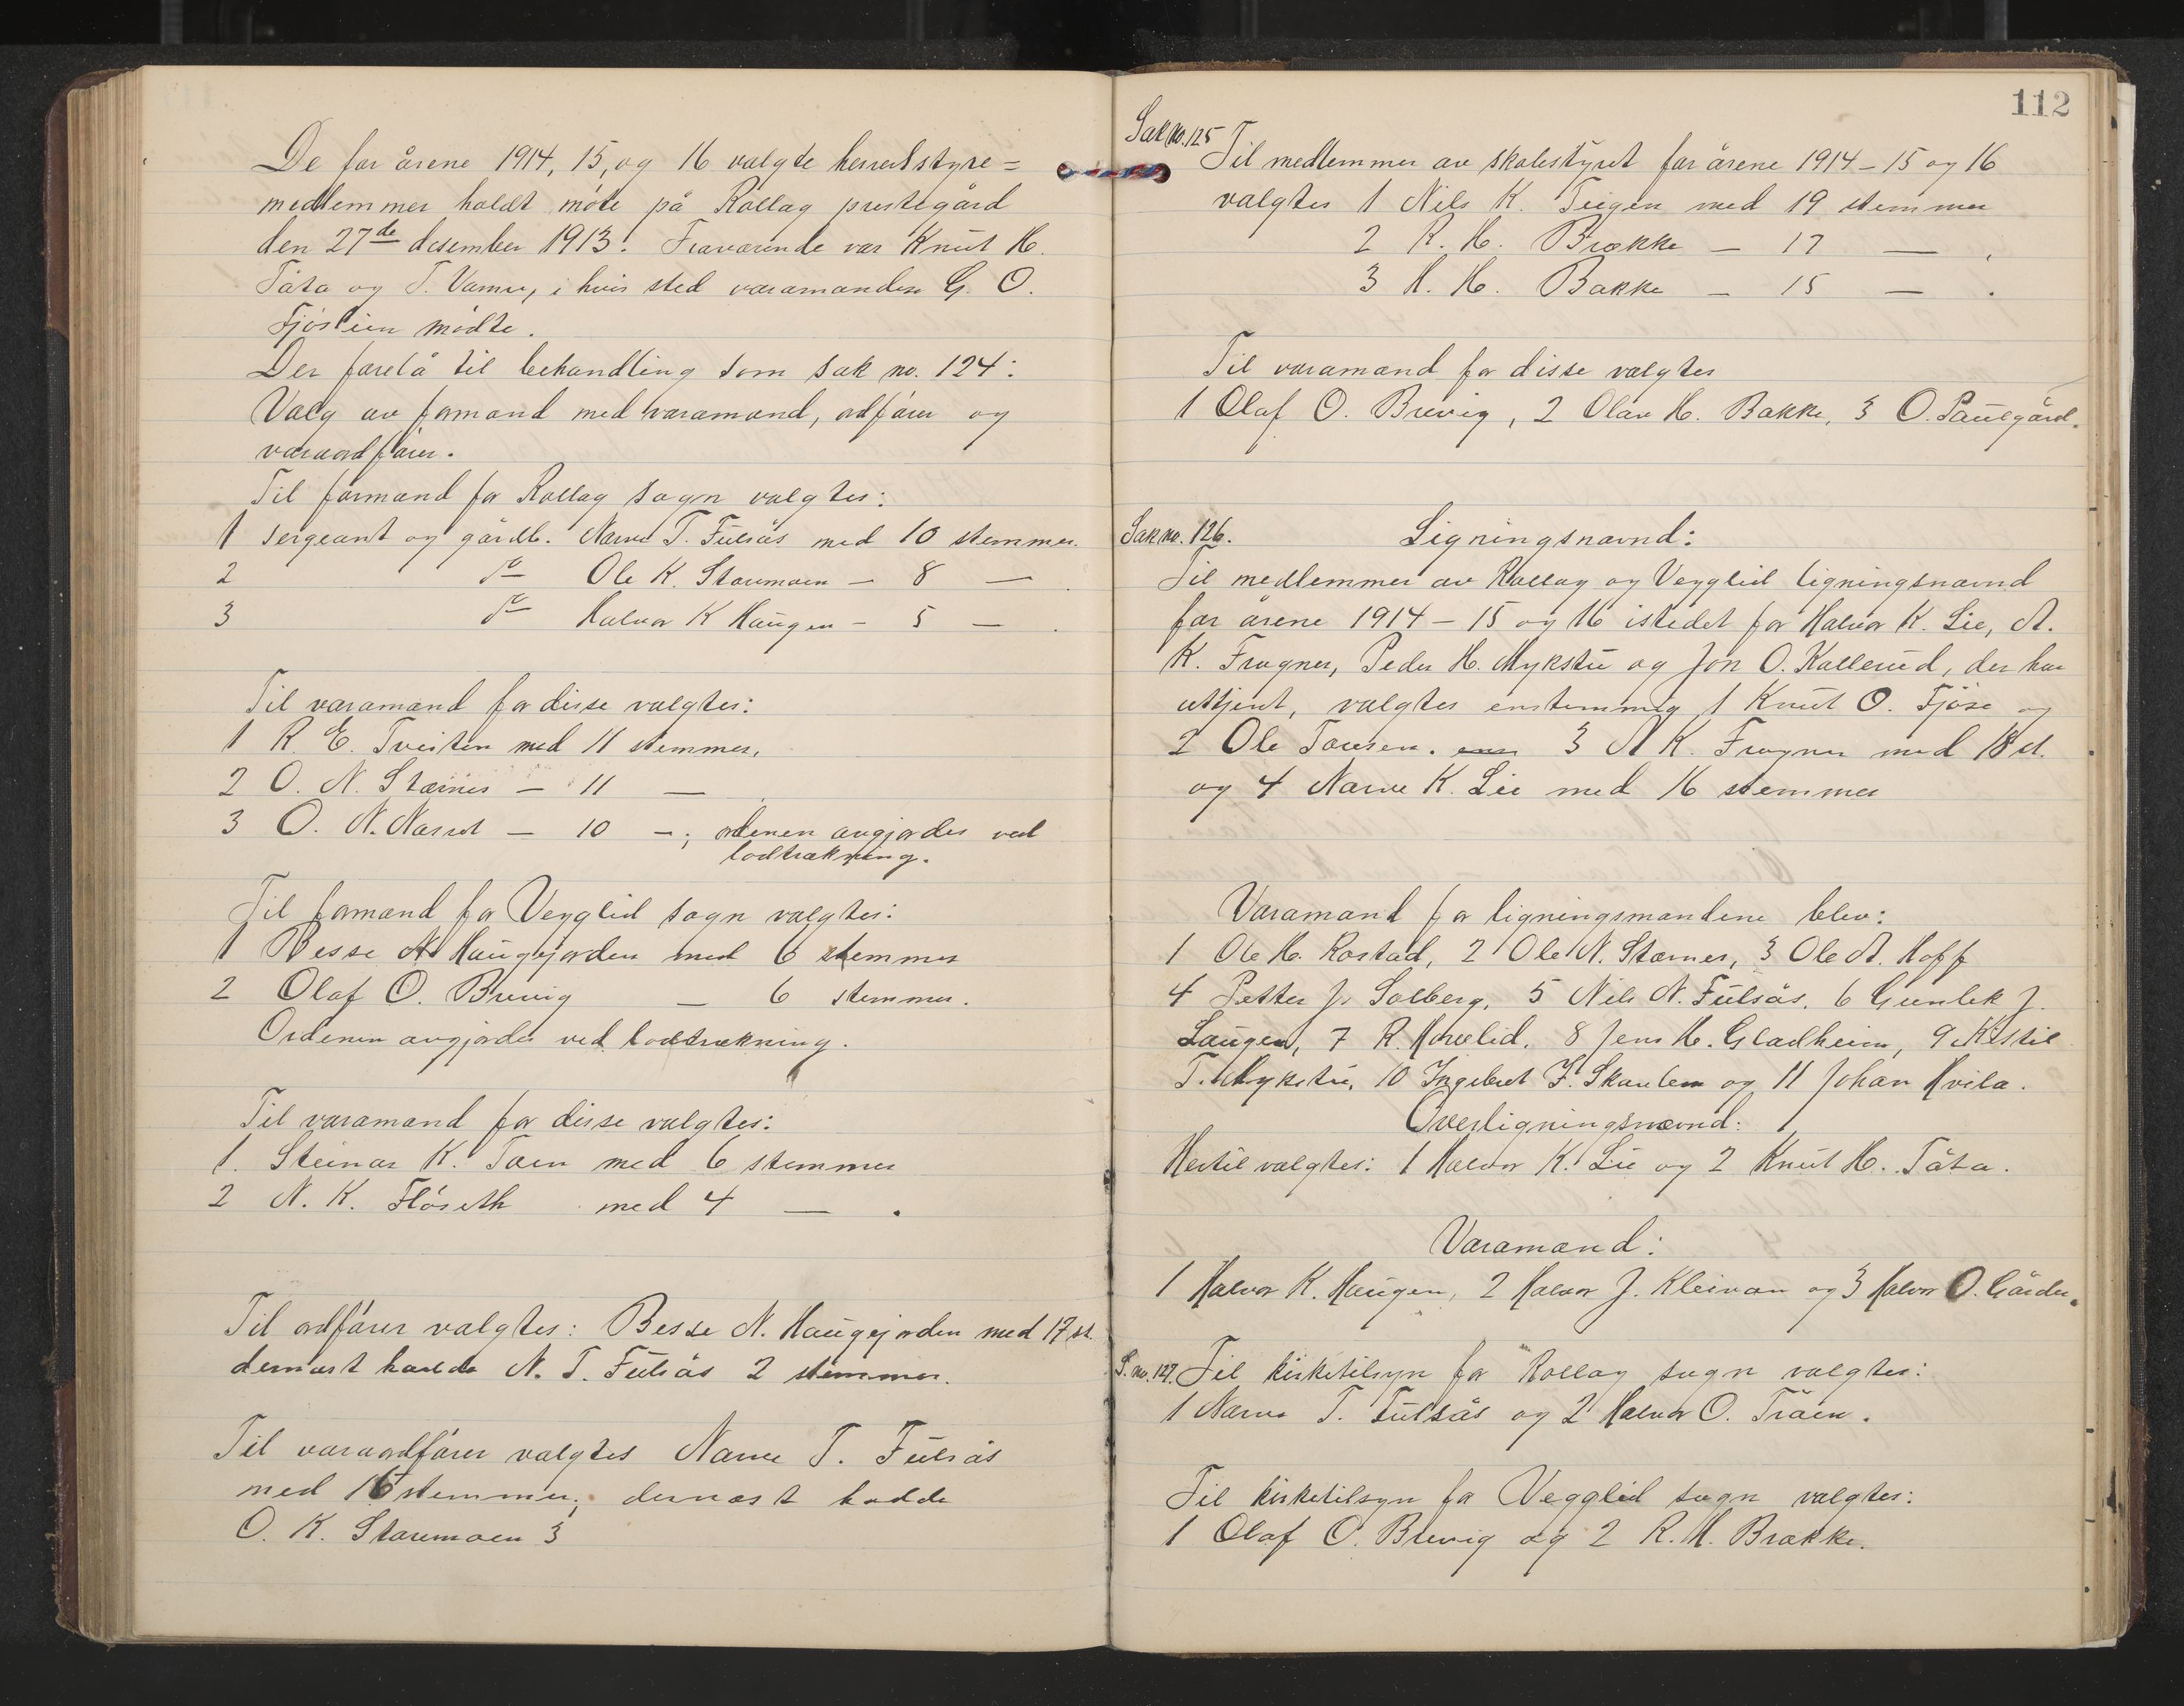 De for årene 1914, 15, og 16 valgte herredsstyre=
medlemmer holdt møte på Rollag prestegård
den 27de desember 1913. Fraværende var Knut H.
Tåta og T. Vamre, i hvis sted varamanden G. O.
Fjøslien mødte.
Der forelå til behandling som sak no. 124:
Valg av formænd med varamænd, ordfører og
varaordfører.
Til formænd for Rollag sogn valgtes:
1 sergeant og gårdb. Narve T. Fulsås med 10 stemmer.
2 do Ole K. Staumoen — 8 —
3 do Halvor K Haugen — 5 — .
Til varamænd for disse valgtes:
1 R. E. Tveiten med 11 stemmer,
2 O. N. Stærnes — 11 —
3 O. N. Næset — 10 —; ordenen avgjordes ved
lodtrækning.
Til formænd for Vegglid sogn valgtes:
1 Besse N Haugejorden med 6 stemmer
2 Olaf O. Brevig — 6 stemmer.
Ordenen avgjordes ved lodtrækning.
Til varamænd for disse valgtes:
1. Steinar K. Toen med 6 stemmer
2 N. K. Fløseth med 4 — .
Til ordfører valgtes: Besse N. Haugejorden med 17 st.
dernæst havde N. T. Fulsås 2 stemmer.
Til varaordfører valgtes Narve T. Fulsås
med 16 stemmer; dernæst hadde
O. K. Staumoen 3
112
Sak no. 125
Til medlemmer av skolestyret for årene 1914 – 15 og 16
valgtes 1 Nils K. Teigen med 19 stemmer
2 R. H. Brække — 17 — .
3 H. H. Bakke — 15 — .
Til varamænd for disse valgtes
1 Olaf O. Brevig, 2 Olav H. Bakke, 3 O. Paulgård.
Sak no. 126. Ligningsnævnd:
Til medlemmer av Rollag og Vegglid ligningsnævnd
for årene 1914 – 15 og 16 istedet for Halvor K. Lie, N.
K. Frogner, Peder H. Mykstu og Jon O. Kallerud, der har
uttjent, valgtes enstemmig 1 Knut O. Fjøse og
2 Ole Toresen. 3 N K. Frogner med 18 st.
og 4 Narve K. Lie med 16 stemmer
Varamænd for ligningsmændene blev:
1 Ole H. Rostad, 2 Ole N. Stærnes, 3 Ole N. Hoff
4 Petter J. Solberg, 5 Nils N. Fulsås, 6 Gunlek J.
Laugen, 7 R. Hovelid, 8 Jens H. Gladheim, 9 Kittil
T. Mykstu, 10 Ingebret F. Skarlem og 11 Johan Hvila.
Overligningsnævnd:
Hertil valgtes: 1 Halvor K. Lie og 2 Knut H. Tåta.
Varamænd:
1 Halvor K. Haugen, 2 Halvor J. Kleivan og 3 Halvor O. Gården.
S. no. 127. Til kirketilsyn for Rollag sogn valgtes:
1 Narve T. Fulsås og 2 Halvor O. Tråen.
Til kirketilsyn for Vegglid sogn valgtes:
1 Olaf O. Brevig og 2 R. H. Brække.